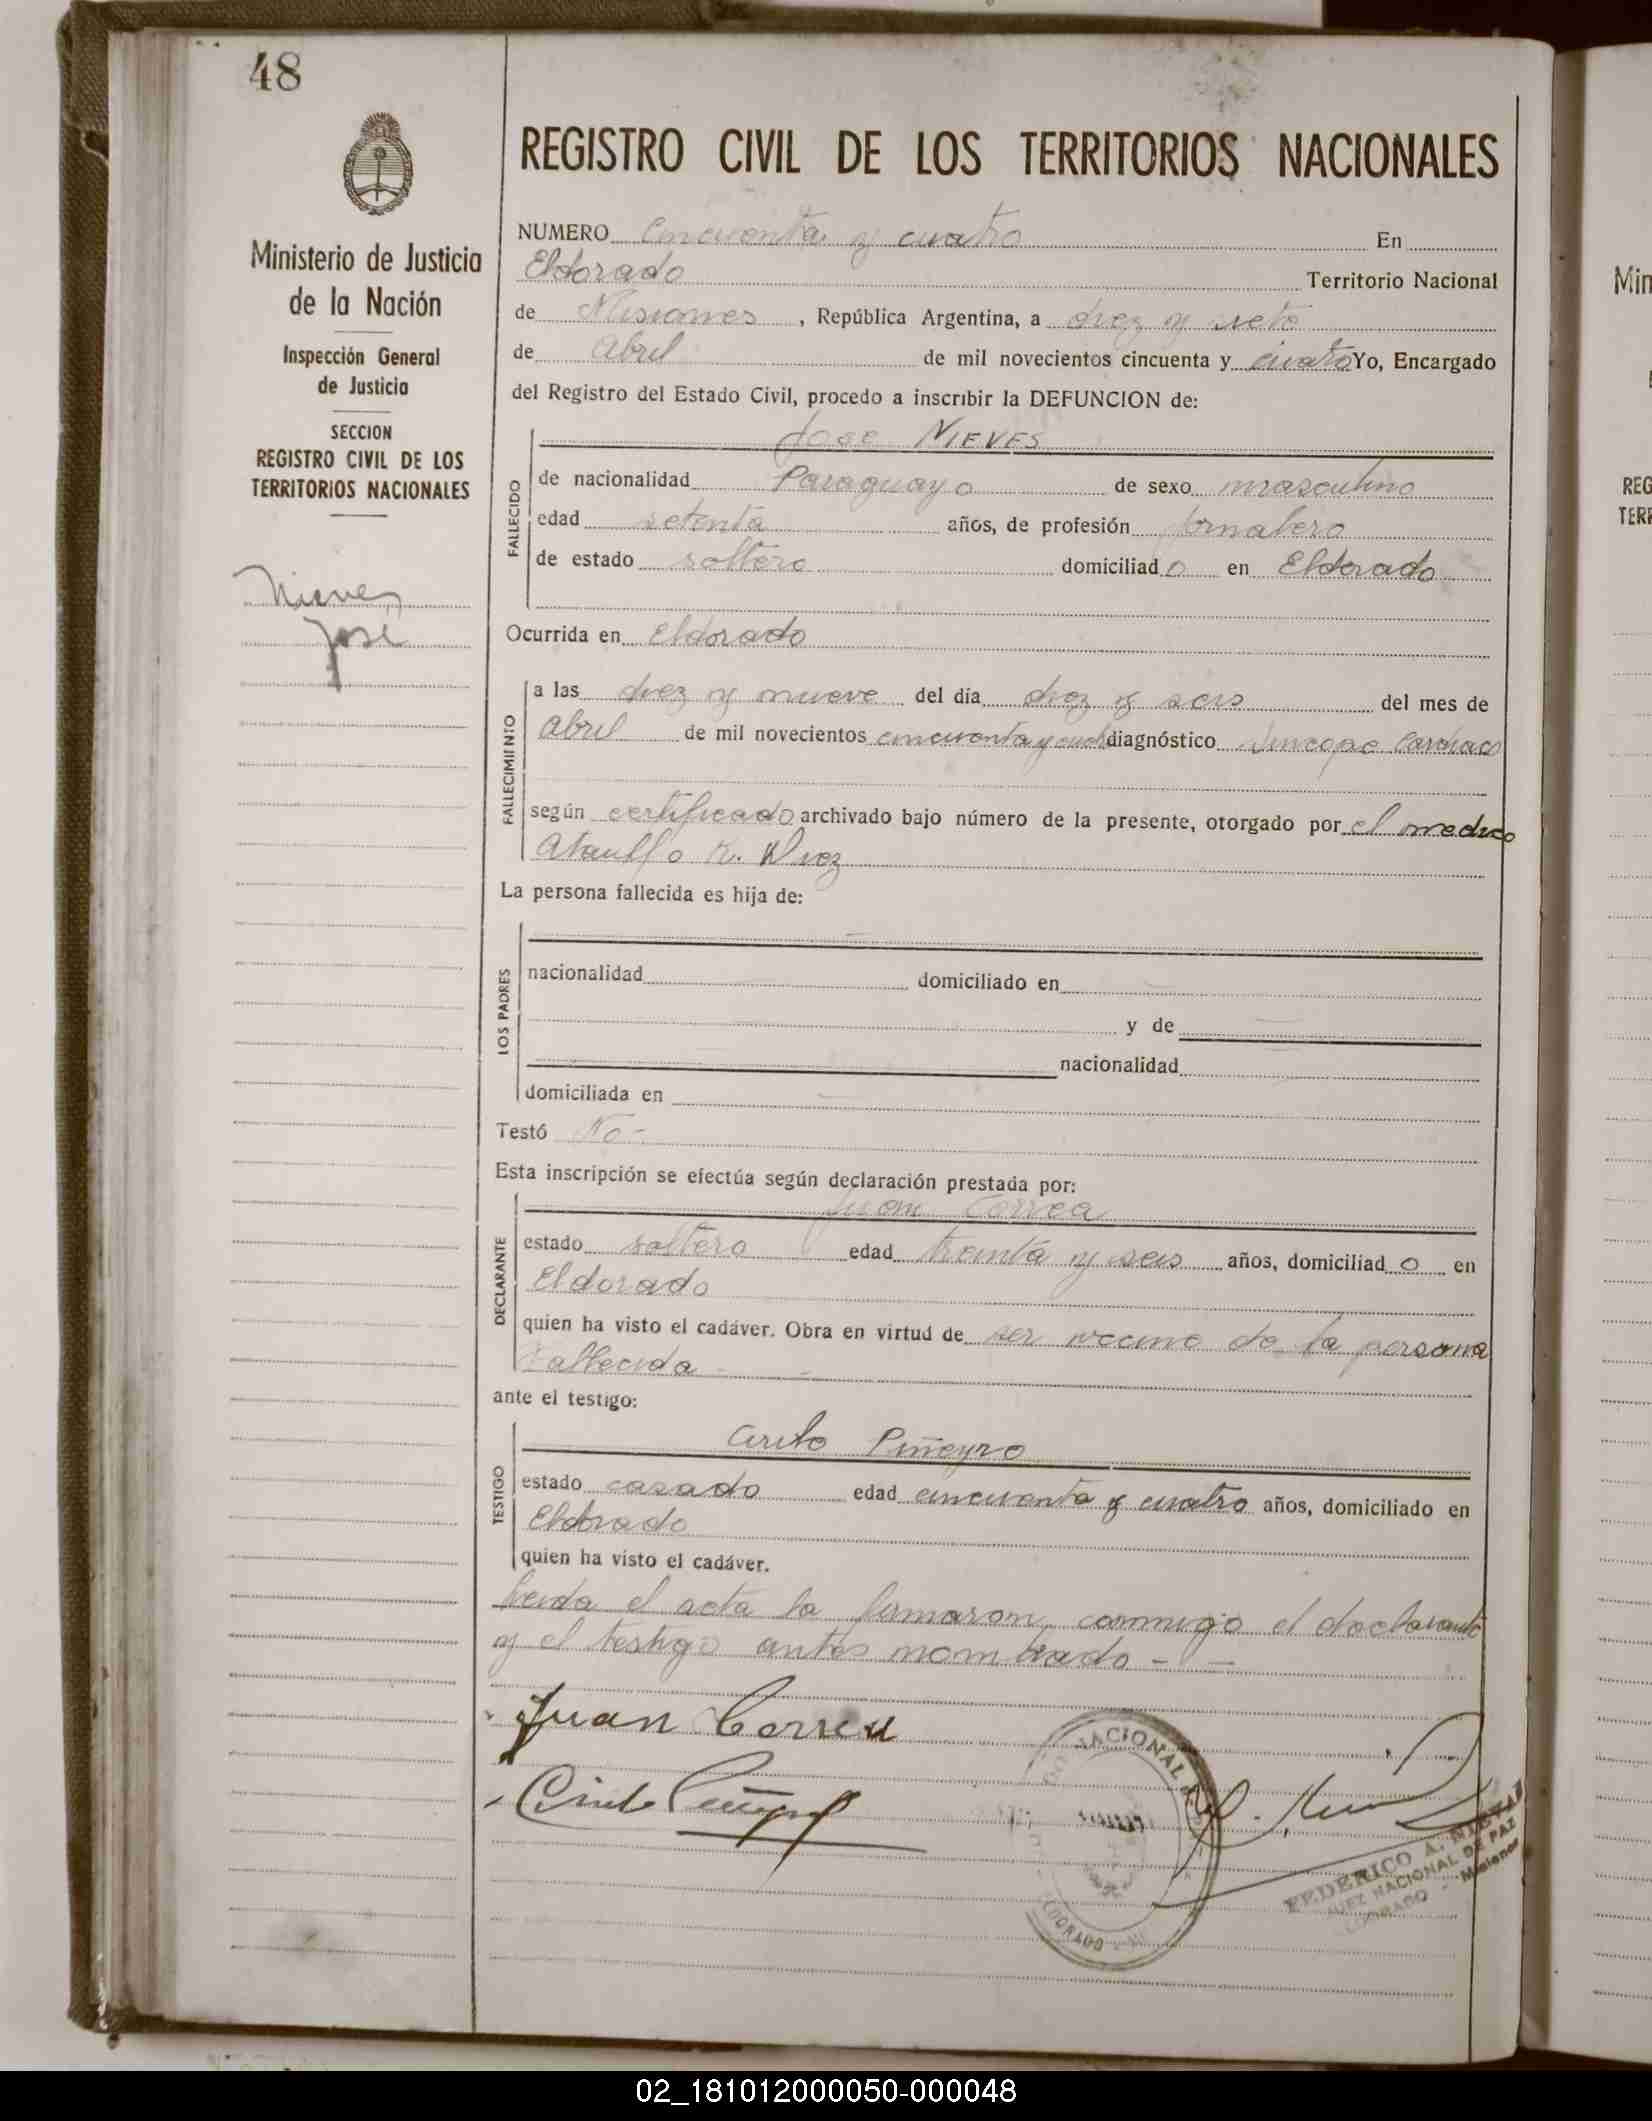 48
Ministerio de Justicia
de la Nación
Inspección General
de Justicia
SECCION
REGISTRO CIVIL DE LOS
TERRITORIOS NACIONALES
Nieves
José
REGISTRO CIVIL DE LOS TERRITORIOS NACIONALES
NUMERO cincuenta y cuatro En
Eldorado Territorio Nacional
de Misiones, República Argentina, a diez y siete
de Abril de mil novecientos cincuenta y cuatro Yo, Encargado
del Registro del Estado Civil, procedo a inscribir la DEFUNCION de:
Jose NIEVES
FALLECIDO
de nacionalidad Paraguayo de sexo masculino
edad setenta años, de profesión jornalero
de estado soltero domiciliado en Eldorado
Ocurrida en Eldorado
FALLECIMIENTO
a las diez y nueve del día diez y seis del mes de
Abril de mil novecientos cincuenta y cuatro diagnóstico Sincope Cardiaco
según certificado archivado bajo número de la presente, otorgado por el medico
Ataulfo R. Diez
La persona fallecida es hija de:
LOS PADRES
nacionalidad domiciliado en
y de
nacionalidad
domiciliada en
Testó No-
Esta inscripción se efectúa según declaración prestada por:
Juan Correa
DECLARANTE
estado soltero edad treinta y seis años, domiciliado en
Eldorado
quien ha visto el cadáver. Obra en virtud de ser vecino de la persona
fallecida
ante el testigo:
Cirilo Piñeyro
TESTIGO
estado casado edad cincuenta y cuatro años, domiciliado en
Eldorado
quien ha visto el cadáver.
Leida el acta la firmaron conmigo el declarante
y el testigo antes nombrado - -
Juan Correa
Cirilo Piñeyro
NACIONAL
ELDORADO
FEDERICO A.
JUEZ NACIONAL DE PAZ
ELDORADO - Misiones
Min
REG
TERR
02_181012000050-000048